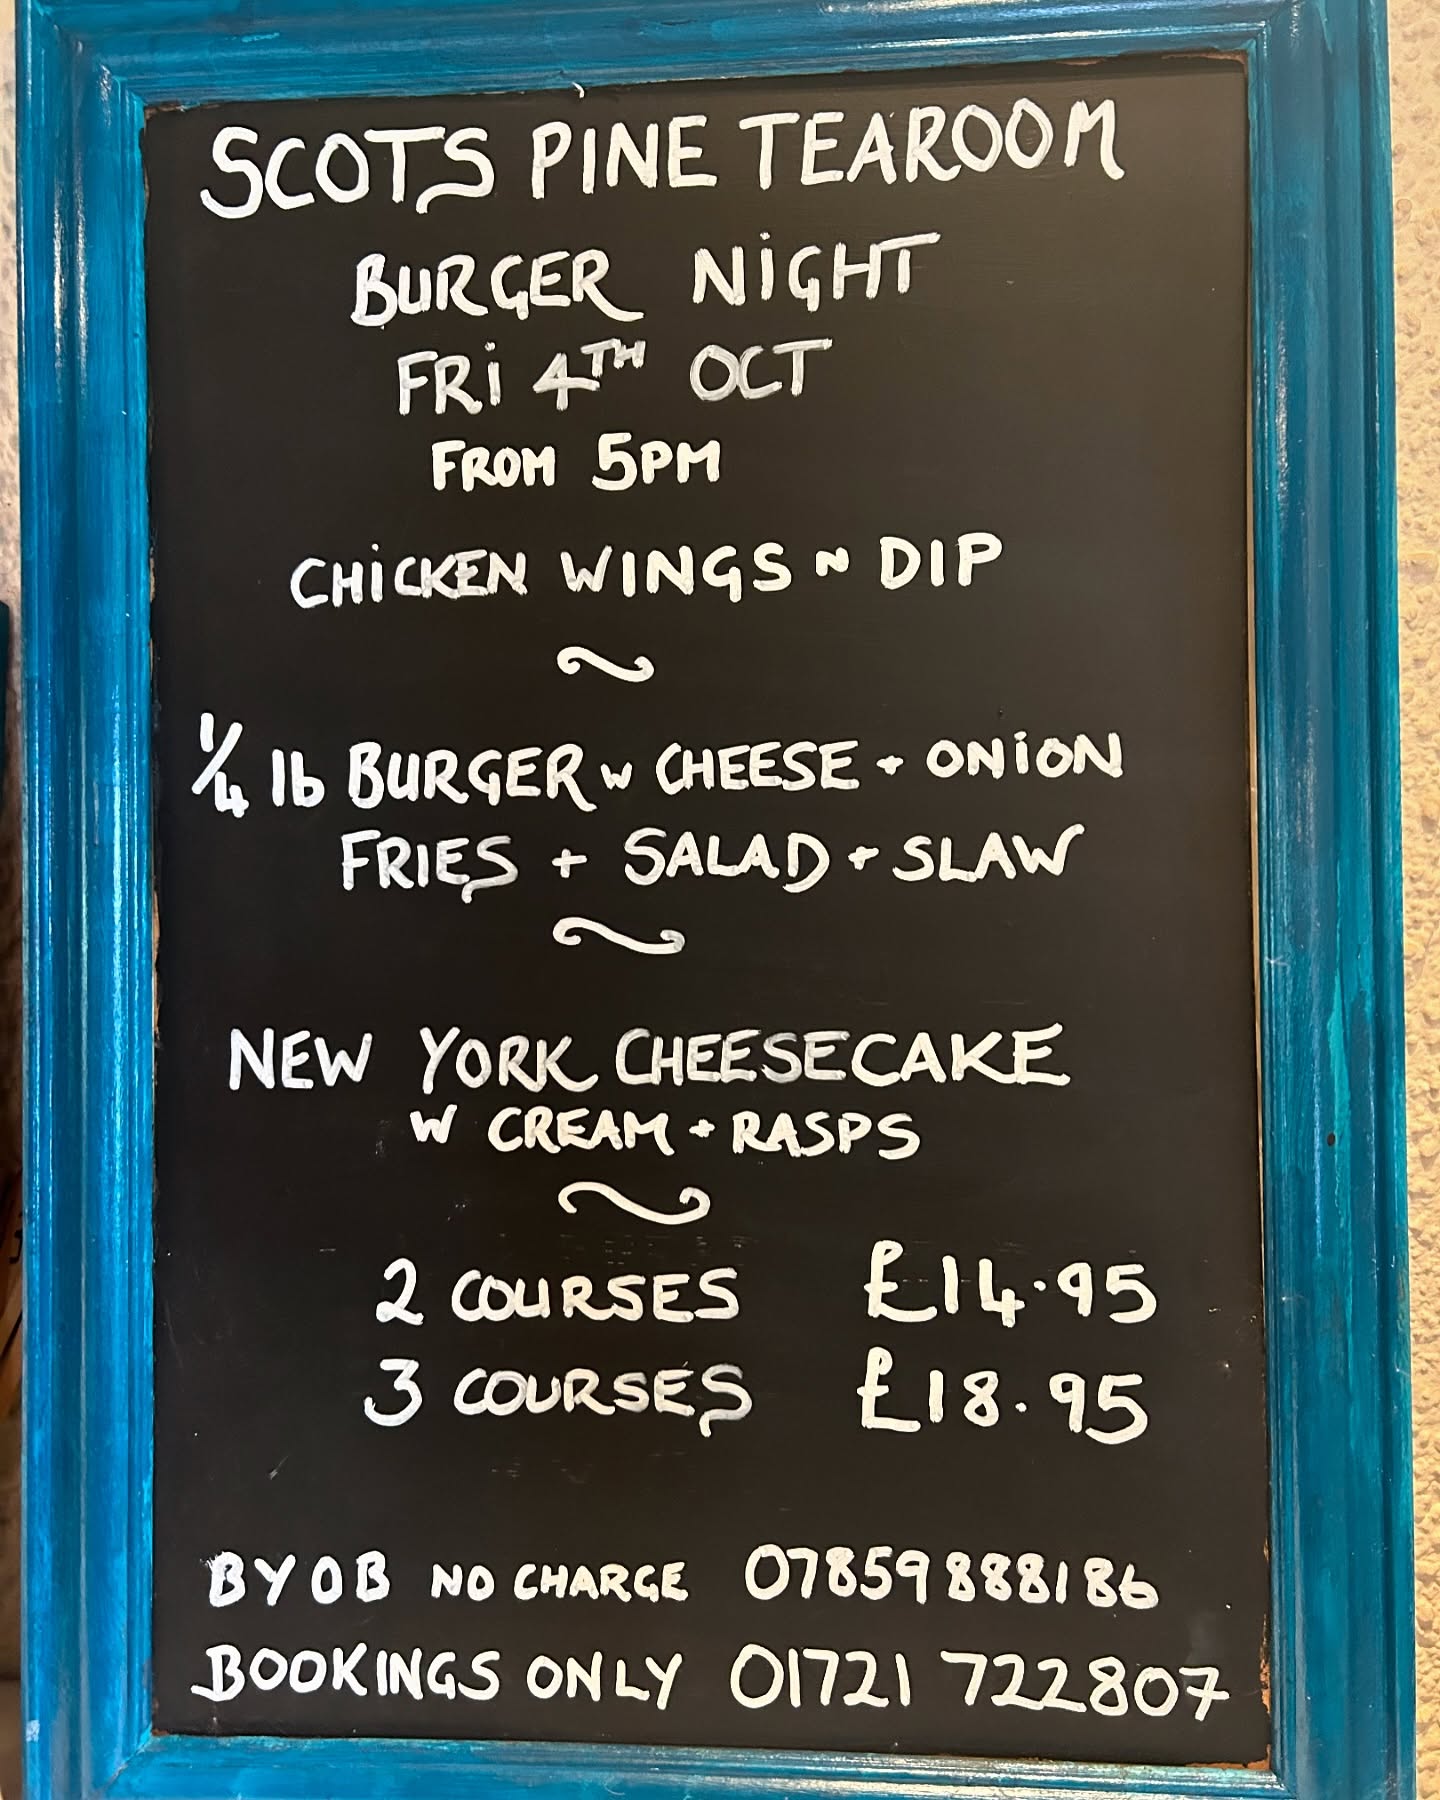 SCOTS PINE TEAROOM
BURGER NIGHT
FRI 4TH OCT
FROM 5PM
CHICKEN WINGS N DIP
1/4 lb BURGER W CHEESE + ONION
FRIES + SALAD + SLAW
NEW YORK CHEESECAKE
W CREAM + RASPS
2 COURSES £14.95
3 COURSES £18.95
BYOB NO CHARGE 07859888186
BOOKINGS ONLY 01721 722807